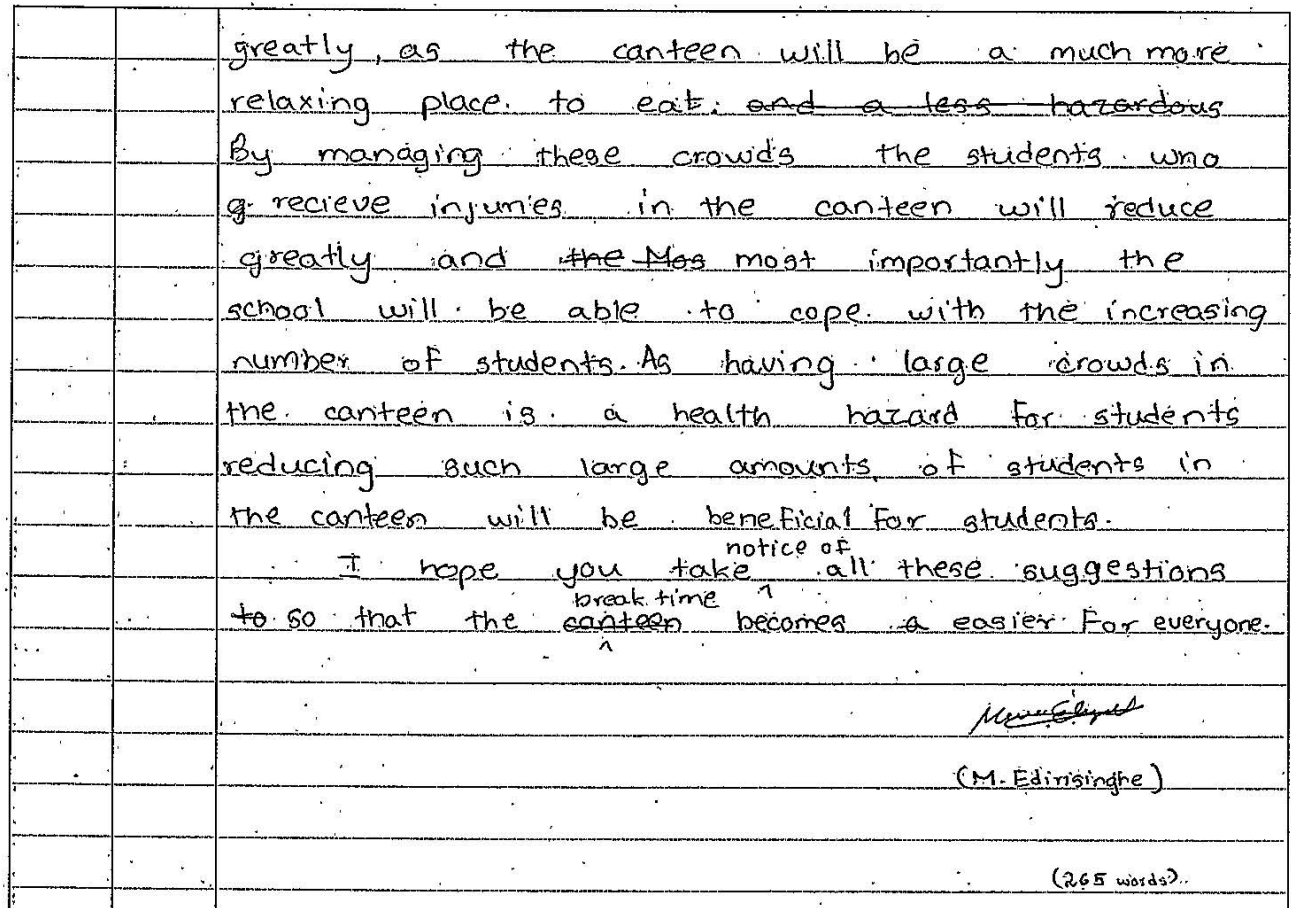 greatly, as the canteen will be a much more
relaxing place. to eat. and a less hazardous
By managing these crowds the students who
g recieve injuries in the canteen will reduce
greatly and the Mos most importantly the
school will be able to cope with the increasing
number of students. As having large crowds in
the canteen is a health hazard for students
reducing such large amounts of students in
the canteen will be beneficial for students.
notice of
I hope you take all these suggestions
break time
to so that the canteen becomes a easier for everyone.
(M. Edirisinghe)
(265 words)